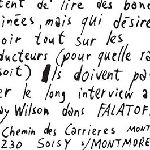 tent de lire des bane
inées, mais qui désire
oir tout sur les
ducteurs (pour quelle ra
soit) ils doivent pa
er le long interview a
y Wilson dans FALATOF
Chemin des Carrières MONT
230 SOISY s/MONTMORE